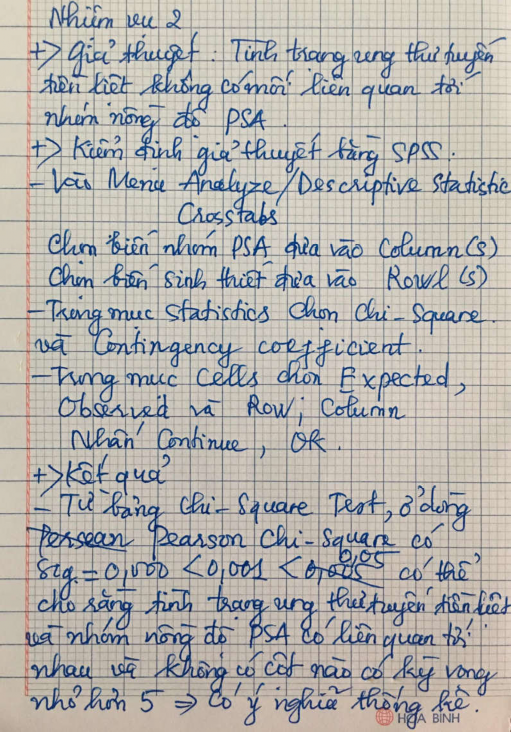 Nhiệm vụ 2
+> Giả thuyết : Tình trạng ung thư tuyến
tiền liệt không có mối liên quan tới
nhóm nồng độ PSA.
+> Kiểm định giả thuyết bằng SPSS.
- Vào Menu Analyze/Descriptive Statistic
Crosstabs
Chọn biến nhóm PSA đưa vào Column(s)
Chọn biến sinh thiết đưa vào Rowl (s)
- Trong mục Statistics chọn Chi-Square.
và Contingency coefficient.
- Trong mục Cells chọn Expected,
Observed và Row; Column
Nhấn Continue, OK.
+> Kết quả
- Từ bảng Chi-Square Test, ở dòng
Persean Pearson Chi-Square có
Sig. = 0,000 < 0,001 < 0,005 0,05 có thể
cho rằng tình trạng ung thư tuyến tiền liệt
và nhóm nồng độ PSA có liên quan tới
nhau và không có cột nào có kỳ vọng
nhỏ hơn 5 => Có ý nghĩa thống kê.
HÒA BÌNH